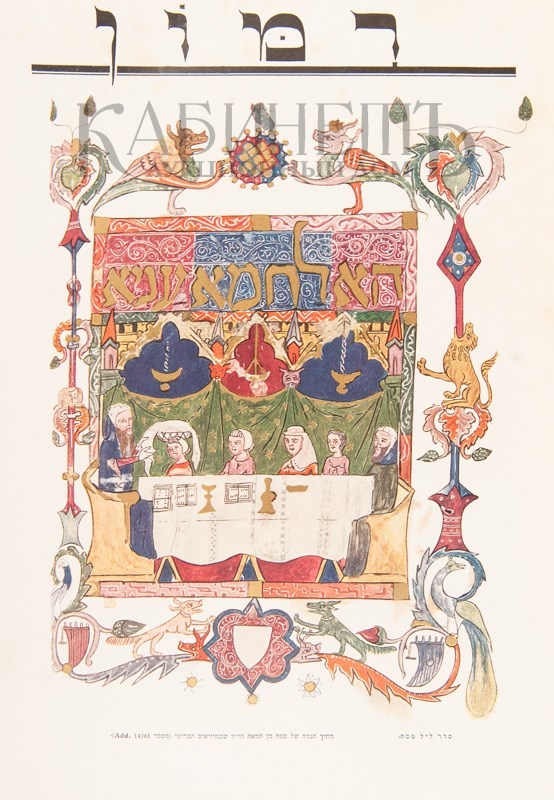 רמון
КАБИНЕТЪ
аукционный дом
הא לחמא עניא
סדר ליל פסח
מתוך הגדה של פסח מן המאה הי״ד שבמוזיאום הבריטי (מספר Add. 14761)